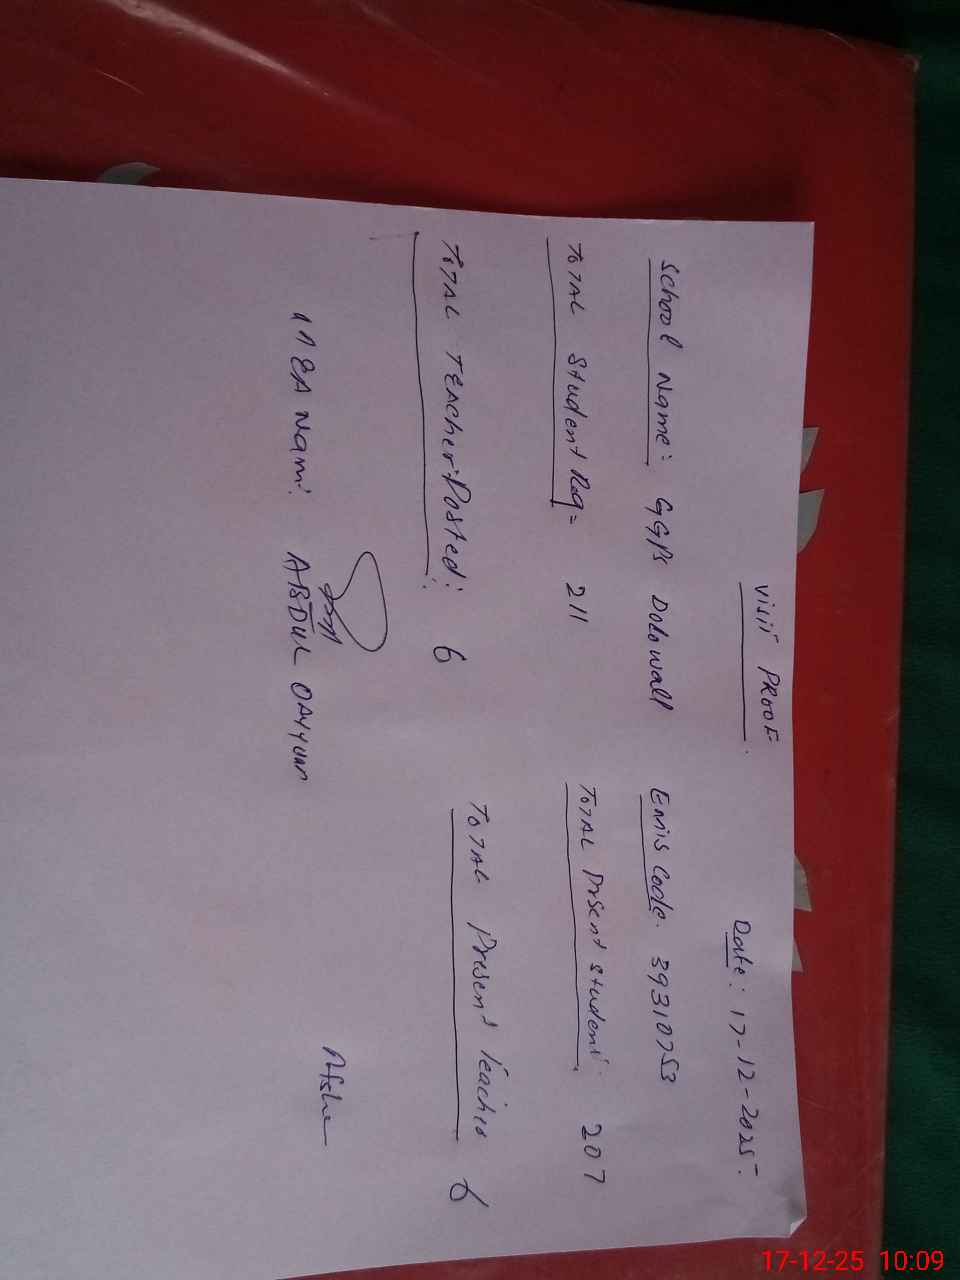 Visit PROOF. Date: 17-12-2025.
School Name: GGPS Dolowall Emis Code. 39310753
TOTAL Student Reg= 211 TOTAL Prsent student: 207
TOTAL TEacher:Posted: 6 TOTAL Present Teacher 6
MEA Name: ABDUL QAYYUM
17-12-25 10:09